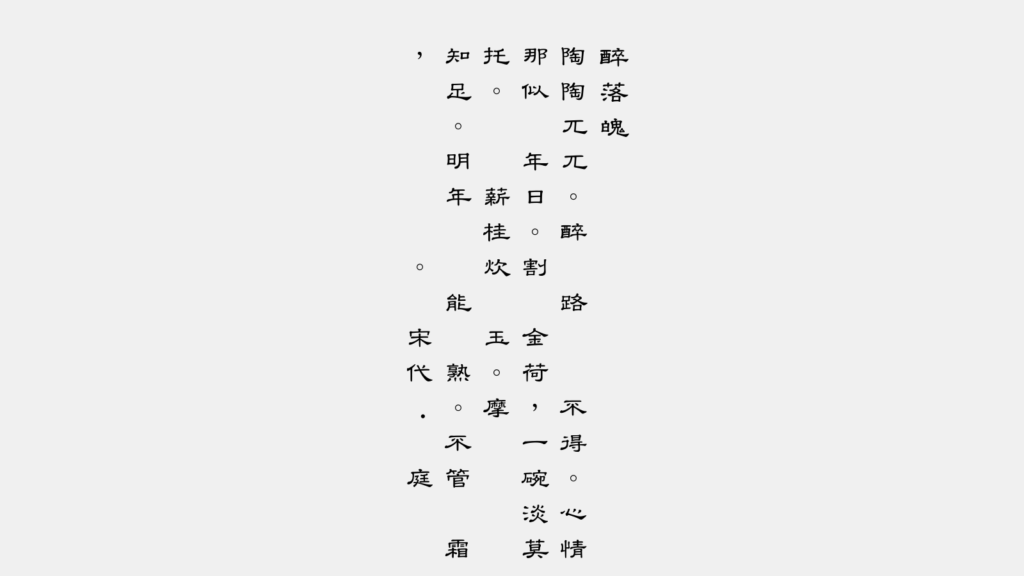 醉落魄
陶陶兀兀。醉 路 不得。心情
那似 年日。割 金荷，一碗淡莫
托。 薪桂炊 玉。摩
知足。明年 能 熟。不管 霜
， 。 宋代． 庭